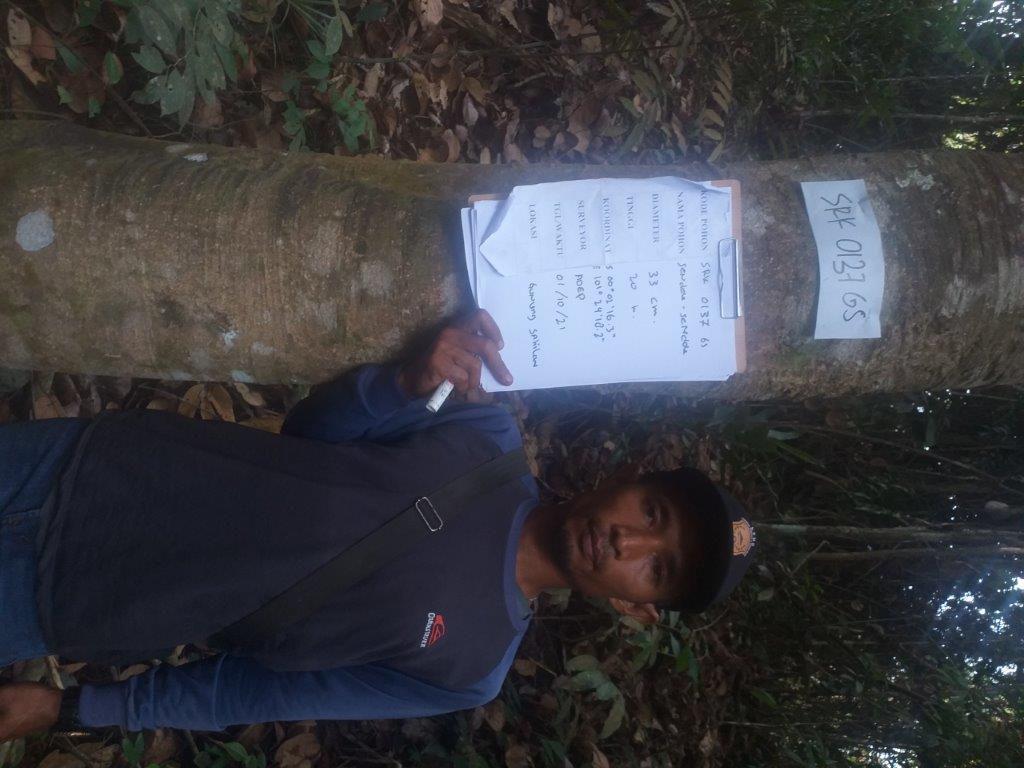 SRK 0137 GS
KODE POHON SRK 0137 GS
NAMA POHON
DIAMETER 33 cm.
TINGGI 20 M.
KOORDINAT S 00° 02' 16.3"
E 101° 24' 18.2"
SURVEYOR
TGL/WAKTU 01/10/21
LOKASI Gunung Sahilan
QUIKSILVER